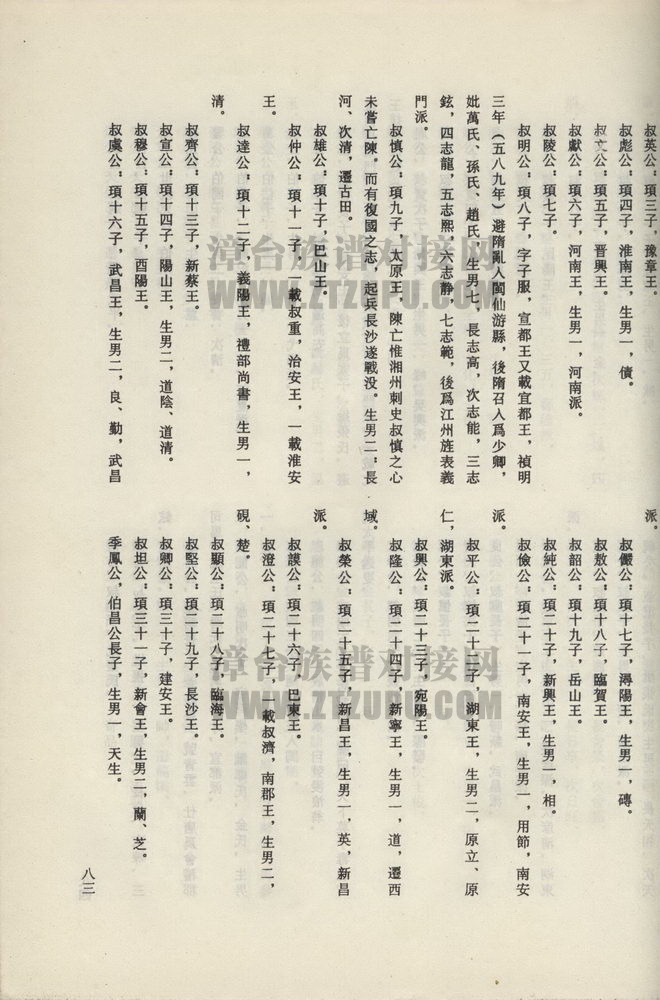 叔英公：頊三子，豫章王。
叔彪公：頊四子，淮南王，生男一，債。
叔文公：頊五子，晋興王。
叔獻公：頊六子，河南王，生男一，河南派。
叔陵公：頊七子。
叔明公：頊八子，字子服，宣都王又載宜都王，禎明
三年（五八九年）避隋亂人閩仙游縣，後隋召人爲少卿，
妣萬氏、孫氏、趙氏，生男七，長志高，次志能，三志
鉉，四志龍，五志熙，六志静，七志範，後爲江州旌表義
門派。
叔慎公：頊九子，太原王，陳亡惟湘州刺史叔慎之心
未嘗亡陳。而有復國之志，起兵長沙遂戰没。生男二：長
河、次清，遷古田。
叔雄公：頊十子，巴山王。
叔仲公：頊十一子，一載叔重，治安王，一載淮安
王。
叔達公：頊十二子，義陽王，禮部尚書，生男一，
清。
叔齊公：頊十三子，新蔡王。
叔宣公：頊十四子，陽山王，生男二，道陰、道清。
叔穆公：頊十五子，酉陽王。
叔虞公：頊十六子，武昌王，生男二，良、勤，武昌
派。
叔儼公：頊十七子，潯陽王，生男一，磚。
叔敖公：頊十八子，臨賀王。
叔韶公：頊十九子，岳山王。
叔純公：頊二十子，新興王，生男一，相。
叔儉公：頊二十一子，南安王，生男一，用節，南安
派。
叔平公：頊二十二子，湖東王，生男二，原立、原
仁，湖東派。
叔興公：頊二十三子，宛陽王。
叔隆公：頊二十四子，新寧王，生男一，道，遷西
域。
叔榮公：頊二十五子，新昌王，生男一，英，新昌
派。
叔謨公：頊二十六子，巴東王。
叔澄公：頊二十七子，一載叔濟，南郡王，生男二，
硯、楚。
叔顯公：頊二十八子，臨海王。
叔堅公：頊二十九子，長沙王。
叔卿公：頊三十子，建安王。
叔坦公：頊三十一子，新會王，生男二，蘭、芝。
季鳳公，伯昌公長子，生男一，天生。
八三
漳台族谱对接网
WWW.ZTZUPU.COM
漳台族谱对接网
WWW.ZTZUPU.COM